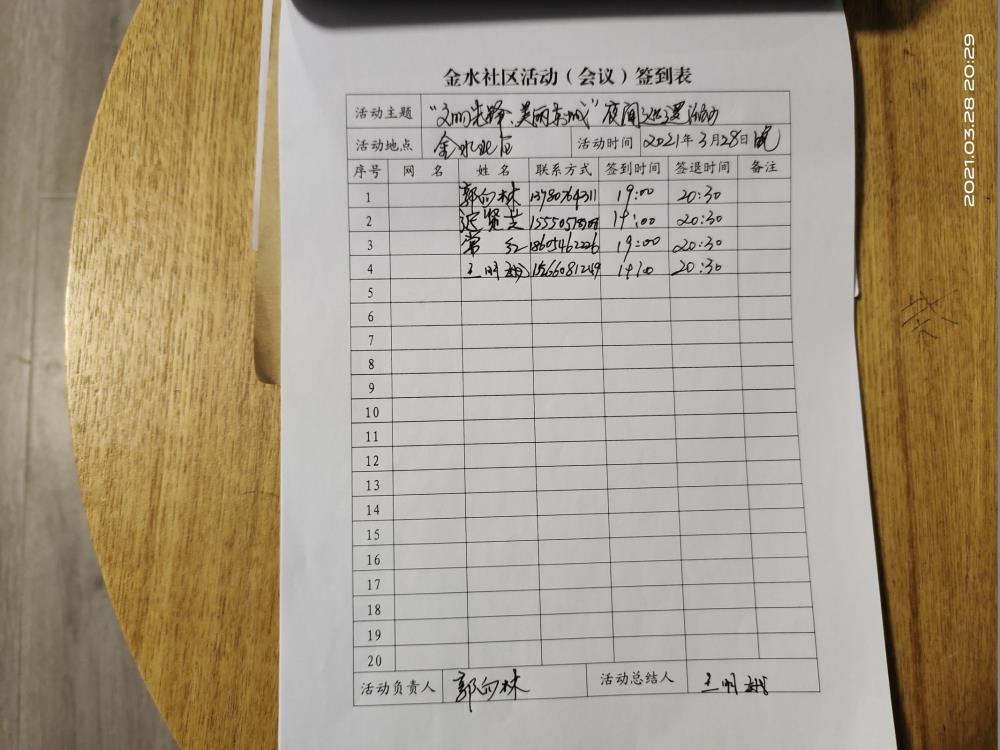 金水社区活动（会议）签到表
活动主题 "文明先锋·美丽东城"夜间巡逻活动
活动地点 金水社区 活动时间 2021年3月28日晚
序号 网 名 姓 名 联系方式 签到时间 签退时间 备注
1 郭向林 13780764311 19:00 20:30
2 19:00 20:30
3 常 红 18605462226 19:00 20:30
4 王明 19:00 20:30
5
6
7
8
9
10
11
12
13
14
15
16
17
18
19
20
活动负责人 郭向林 活动总结人 王明
2021.03.28 20:29